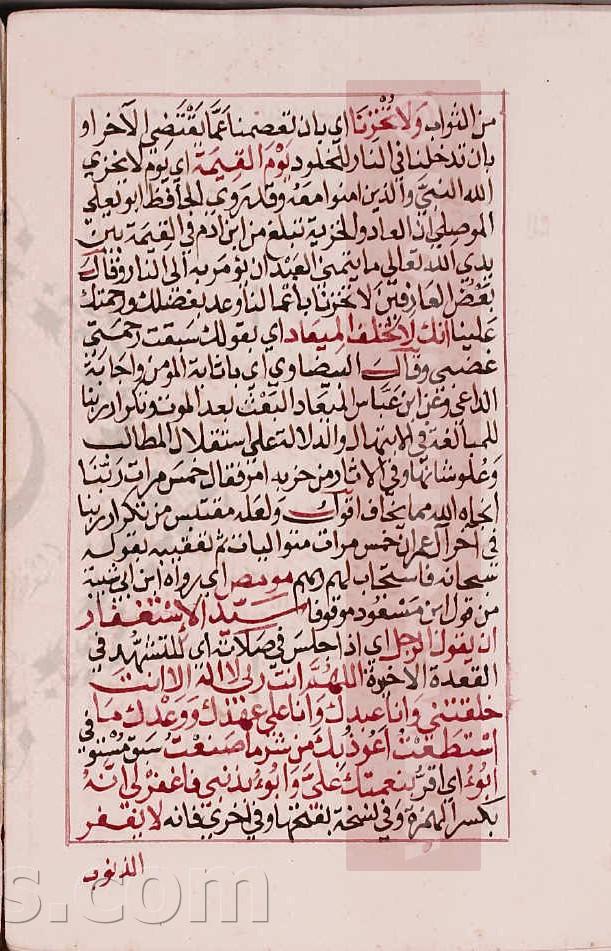 من الثواب ولا تخزنا اي بان تعصمنا عما تقتضي الآخر او
بان تدخلنا في النار للخلود يوم القيمة اي يوم لا يخزي
الله النبي والذين امنوا معه وقد روى الحافظ ابو يعلى
الموصلي ان العار والخزية تبلغ من ابن ادم في القيمة بين
يدي الله تعالى ما يتمنى العبد ان يؤمر به الى النار وقال
بعض العارفين لا تخزنا باعمالنا وعد بفضلك ورحمتك
علينا انك لا تخلف الميعاد اي بقولك سبقت رحمتي
غضبي وقال البيضاوي اي باثابة المؤمن واجابة
الداعي وعن ابن عباس الميعاد البعث بعد الموت وتكرار ربنا
للمبالغة في الابتهال والدلالة على استقلال المطالب
وعلو شانها وفي الاثار من حزبه امر فقال خمس مرات ربنا
انجاه الله مما يخاف اقول ولعله مقتبس من تكرار ربنا
في آخر آل عمران خمس مرات متواليات ثم تعقيبه بقوله
سبحانه فاستجاب لهم ربهم مو مص اي رواه ابن ابي شيبة
من قول ابن مسعود موقوفا سيد الاستغفار
ان يقول الرجل اي اذا جلس في صلاته اي للتشهد في
القعدة الآخرة اللهم انت ربي لا اله الا انت
خلقتني وانا عبدك وانا على عهدك ووعدك ما
استطعت اعوذ بك من شر ما صنعت سبق مستوفى
ابوء اي اقر بنعمتك علي وابوء بذنبي فاغفر لي انه
بكسر الهمزة وفي نسخة بفتحها وفي اخرى فانه لا يغفر
الذنوب
s.com